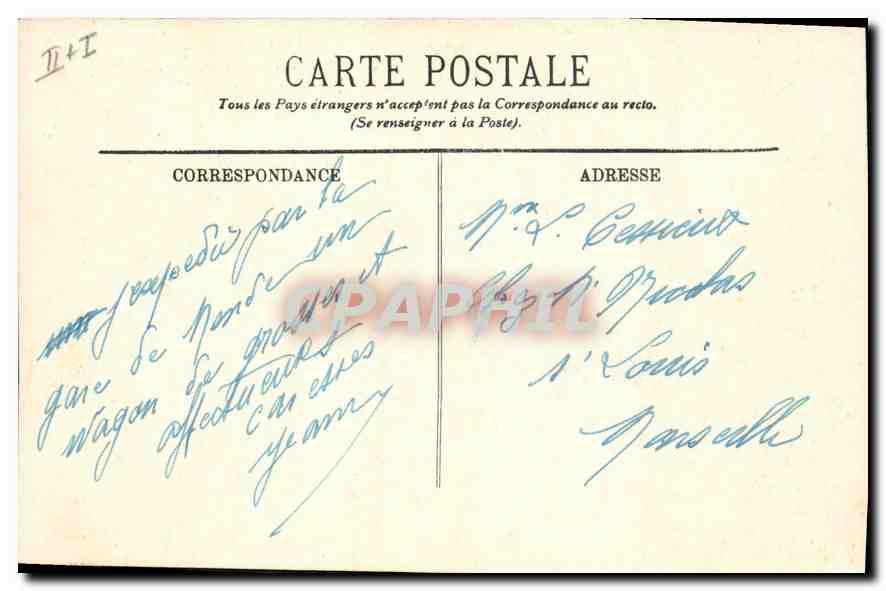 II + I
CARTE POSTALE
Tous les Pays étrangers n'acceptent pas la Correspondance au recto.
(Se renseigner à la Poste).
CORRESPONDANCE
j'expédie par la
gare de Mende un
wagon de grosses et
affectueuses
caresses
Jeanny
ADRESSE
Mr. L.
chez Mr Nicolas
St Louis
Marseille
CPAPHIL